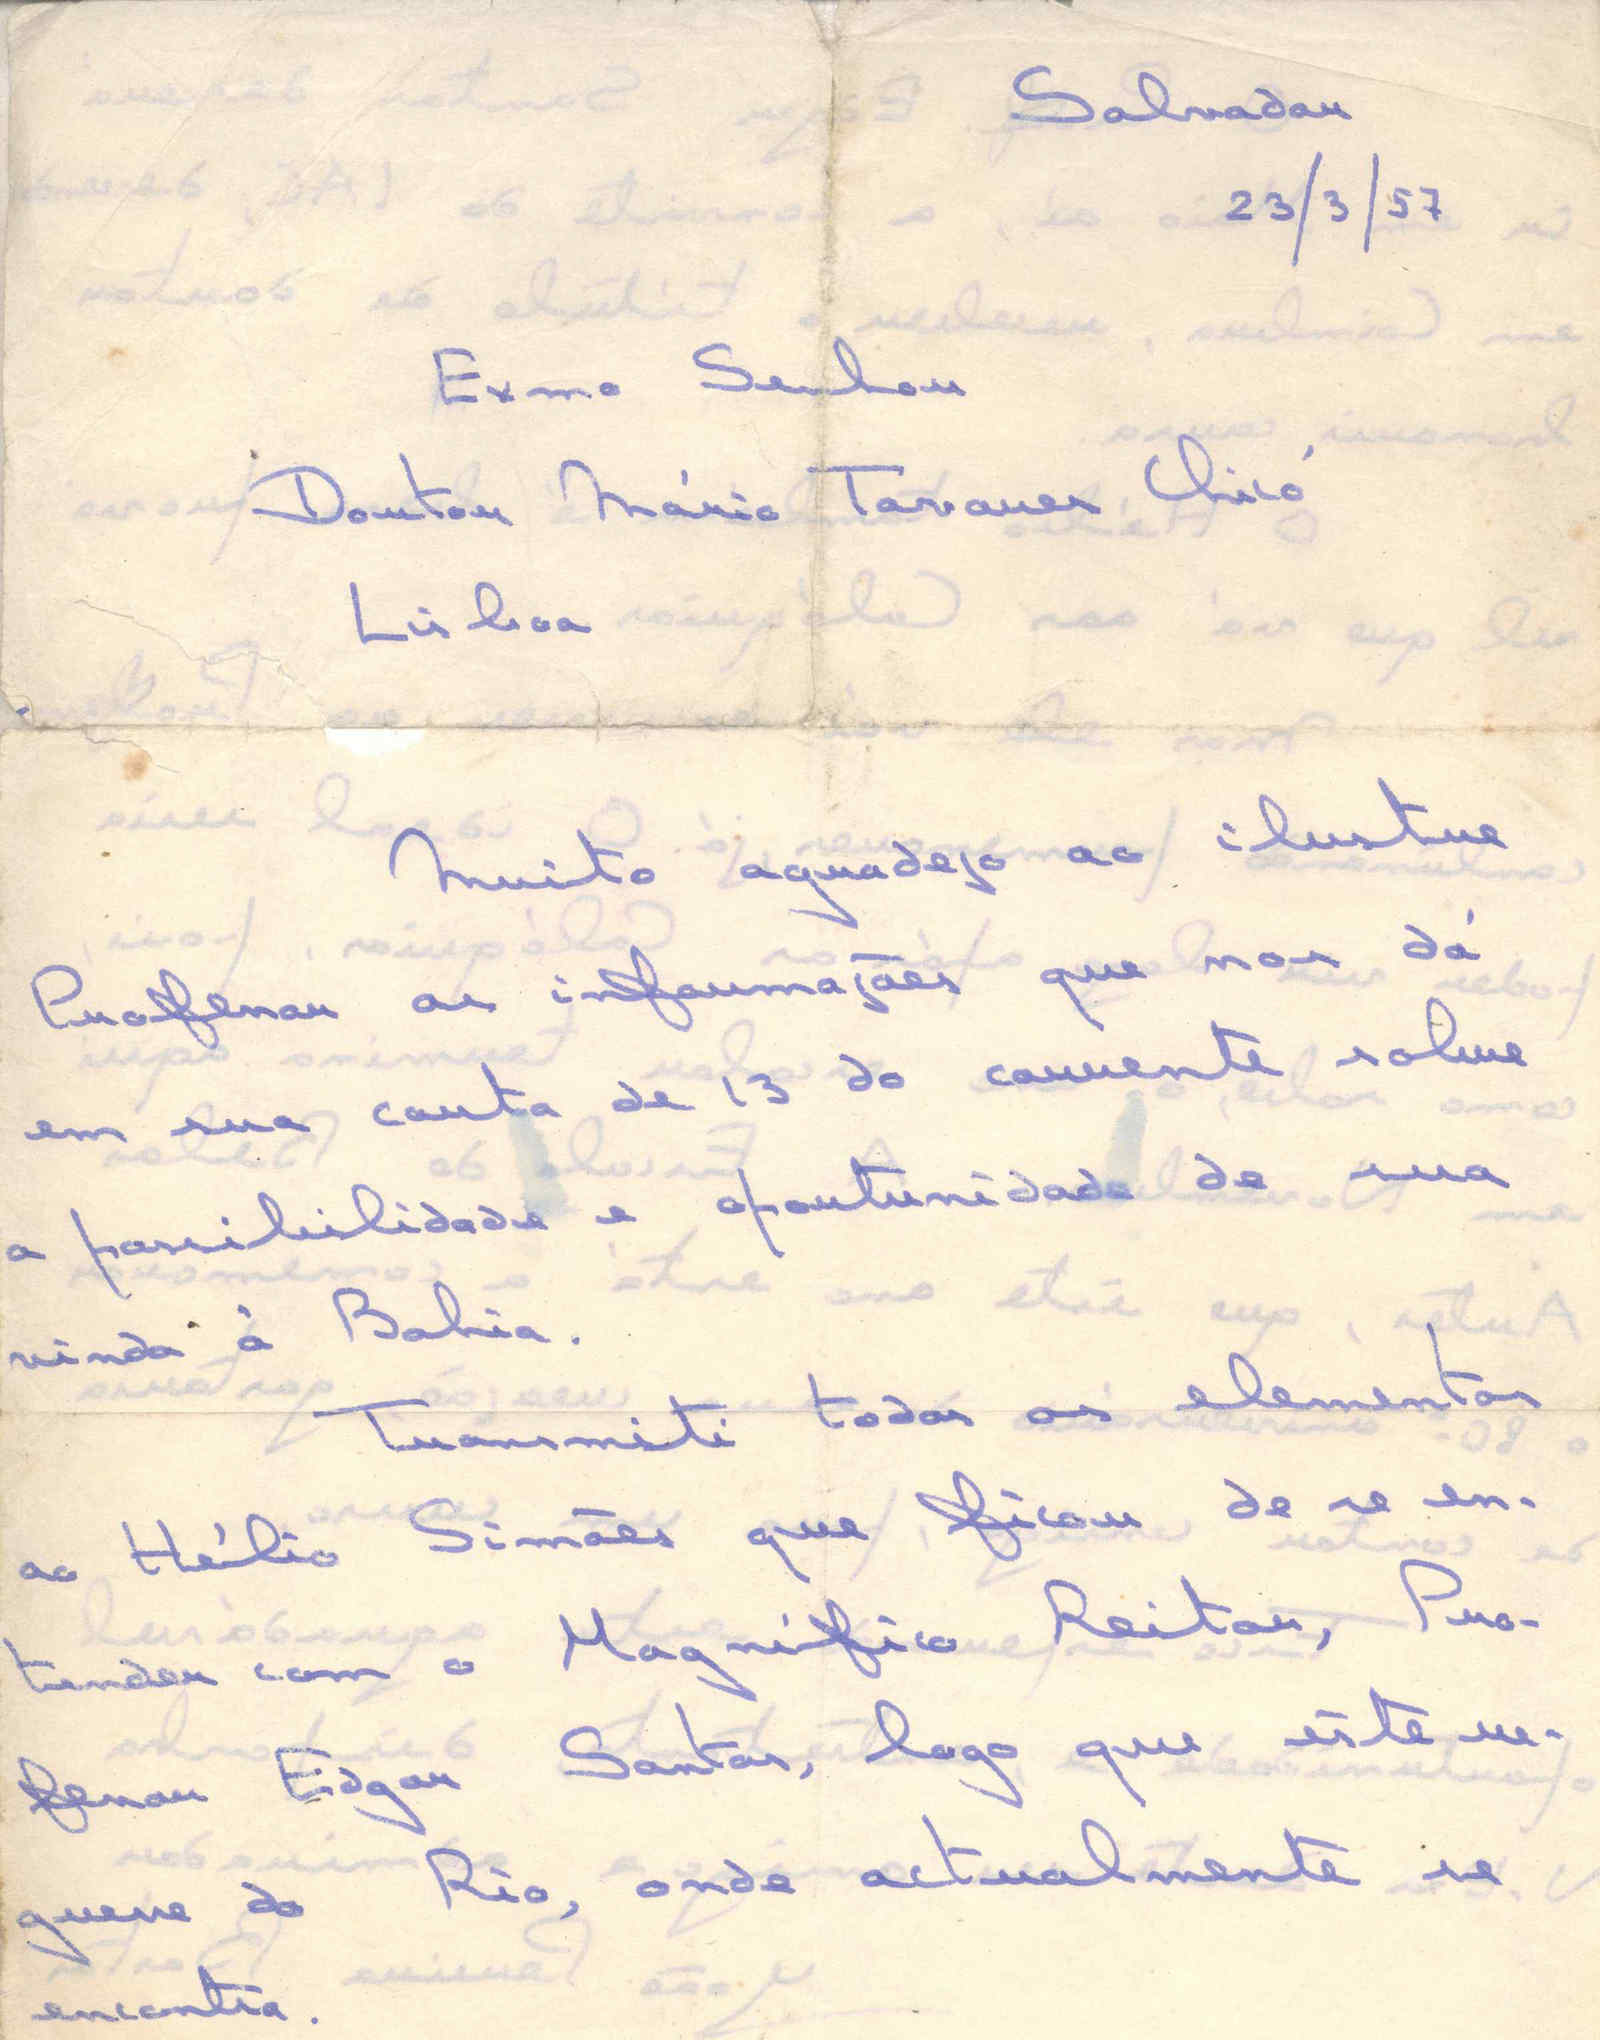 Salvador
23/3/57
Exmo Senhor
Doutor Mário Tavares Chicó
Lisboa
Muito agradeço ao ilustre
Professor as informações que nos dá
em sua carta de 13 do corrente sobre
a possibilidade e oportunidade de sua
vinda à Bahia.
Transmiti todos os elementos
ao Hélio Simões que ficou de se en-
tender com o Magnífico Reitor, Pro-
fessor Edgar Santos, logo que êste re-
gresse do Rio, onde actualmente se
encontra.